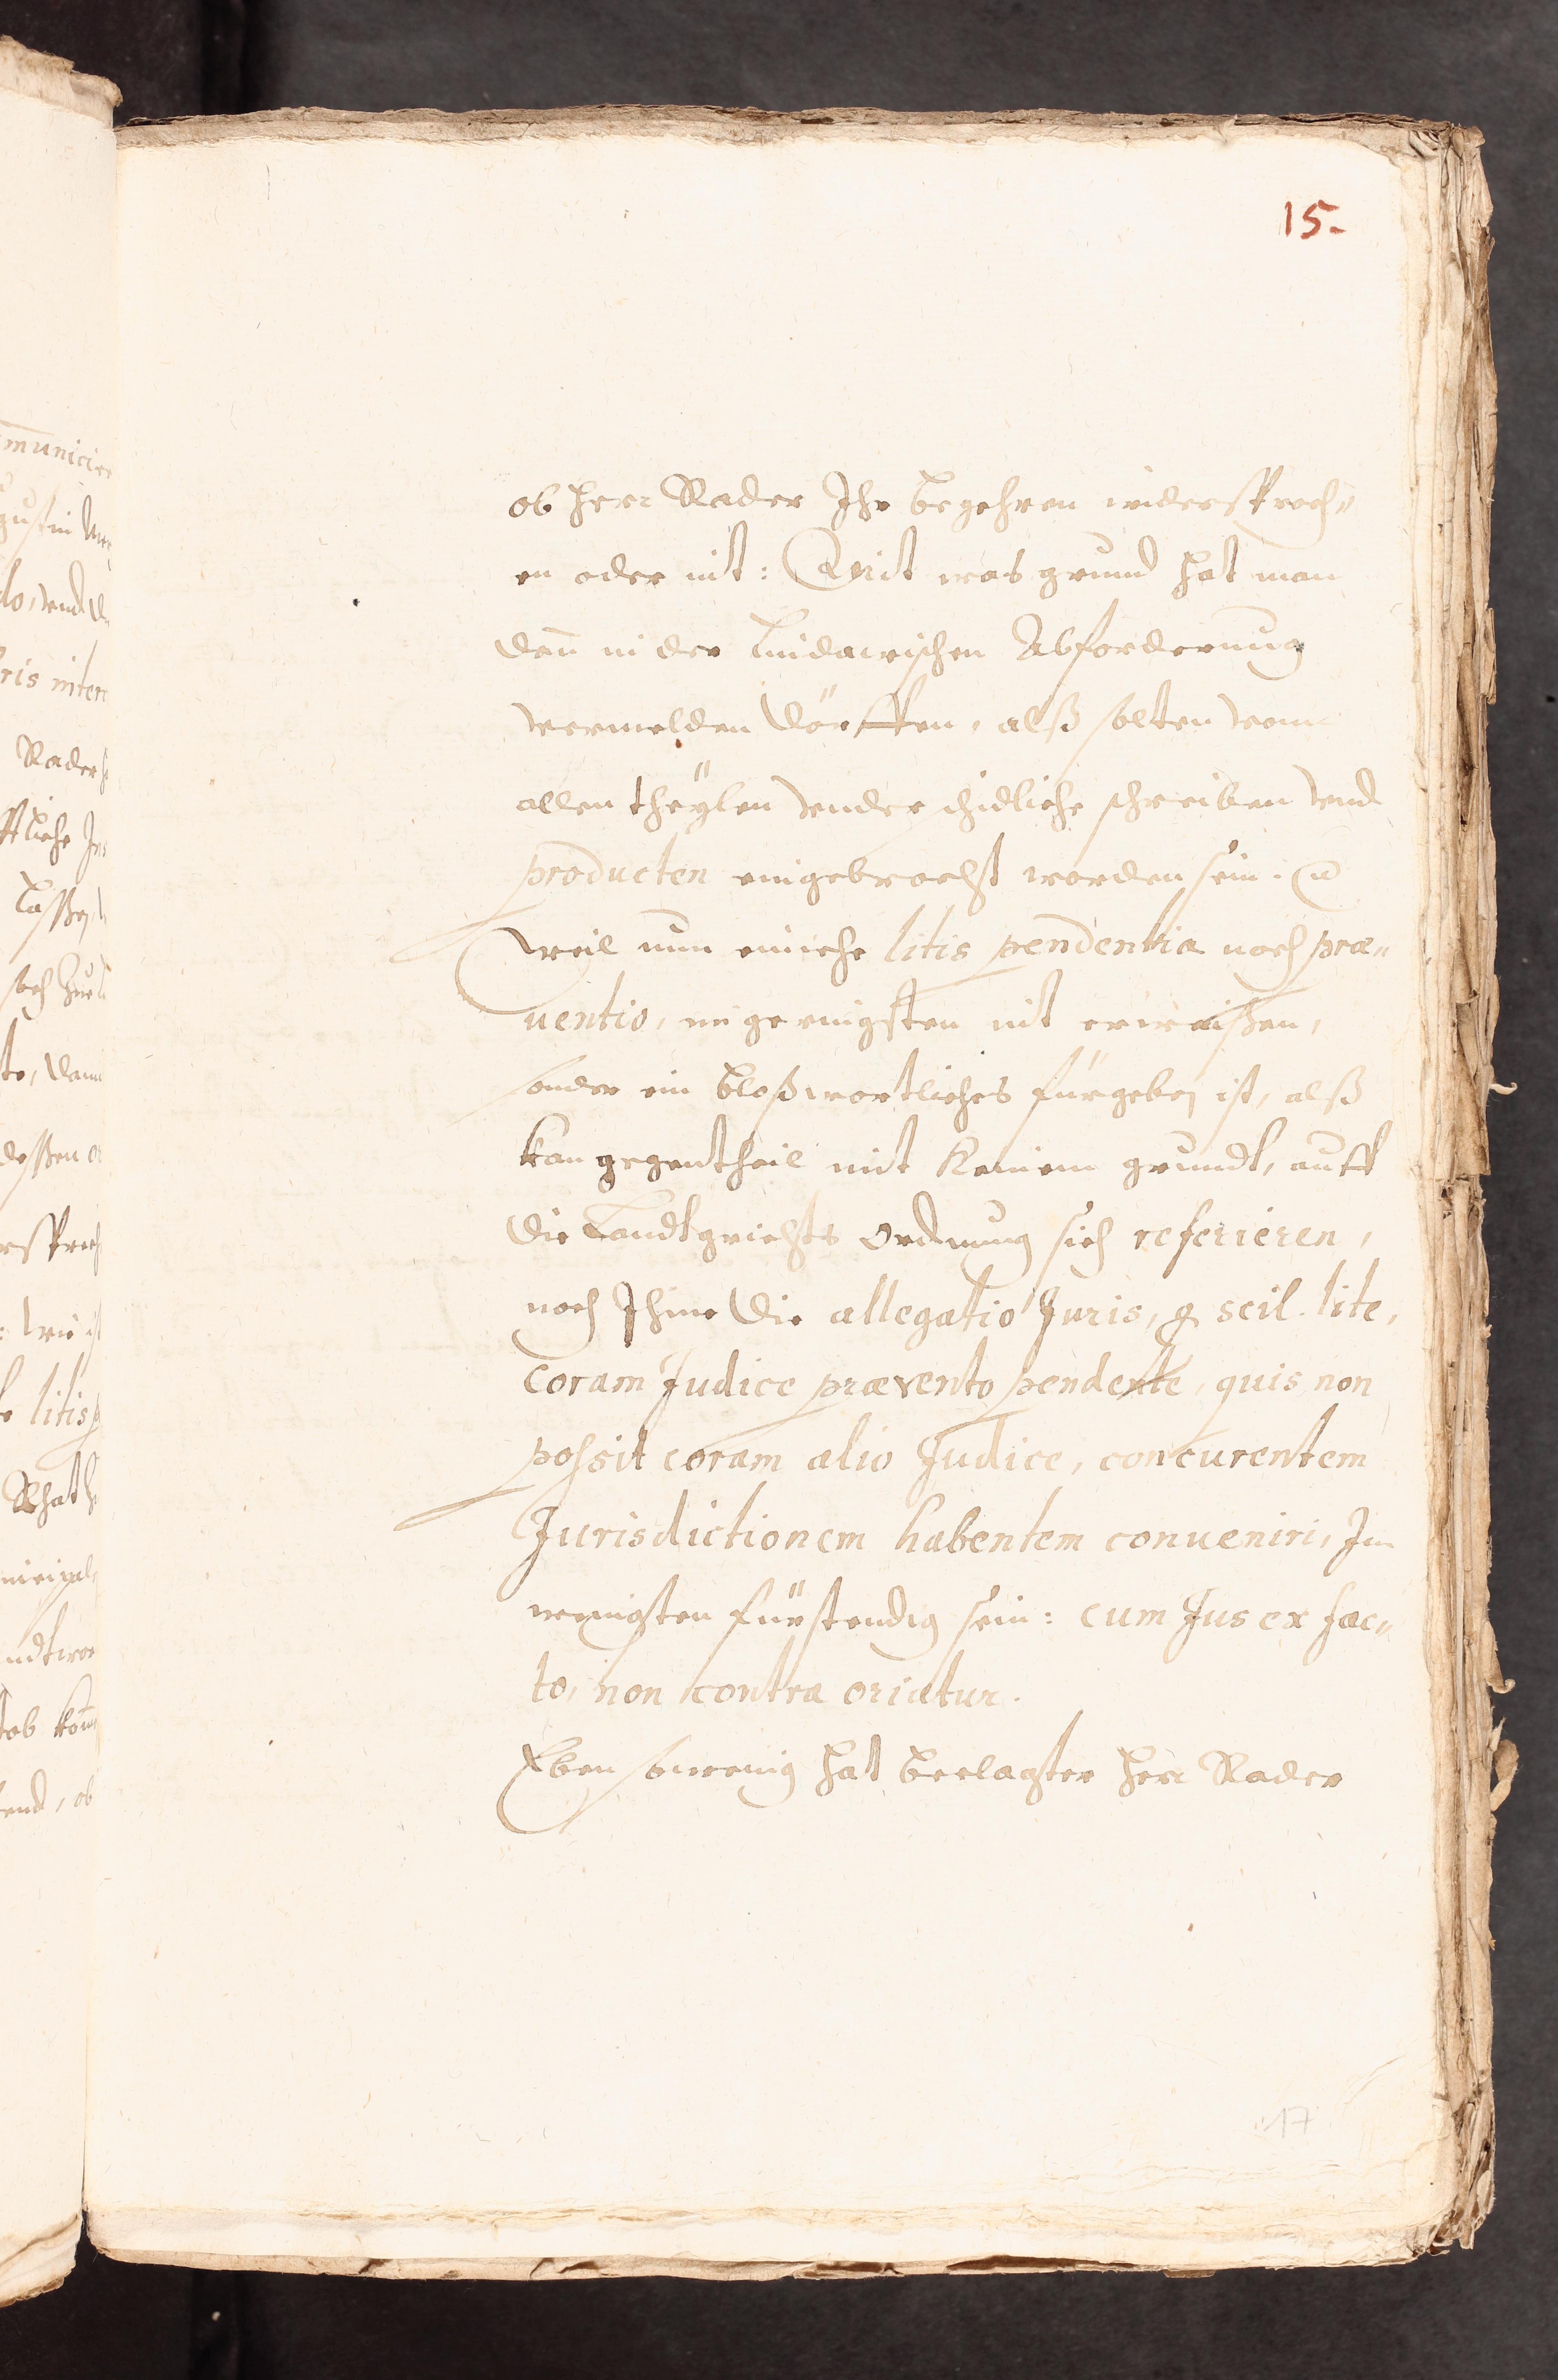 15.
ob Herr Rader Ihr begehren widersproch„
en oder nit: Mit was grund hat man
dan̄ in der Lindawischen Abforderung
vermelden dörffen, alß solten vonn
allen theÿlen vnderschidliche schreiben vnd
producten eingebracht worden sein.
Weil nun einiche litis pendentia noch præ„
uentio, im geringsten nit erwaißen,
sonder ein bloß wortliches fürgeben ist, alß
kan gegentheil mit Keinem grundt, auff
die Landtgrichts Ordnung sich referieren,
noch Ihme die allegatio Juris, q. scil. lite,
coram Judice prævento pendente, quis non
possit coram alio Judice, concurentem
Jurisdictionem habentem conueniri, Im
wenigsten fürstendig sein: cum Jus ex fac„
to, non contra oriatur.
Eben so wenig hat beclagter Herr Rader
17